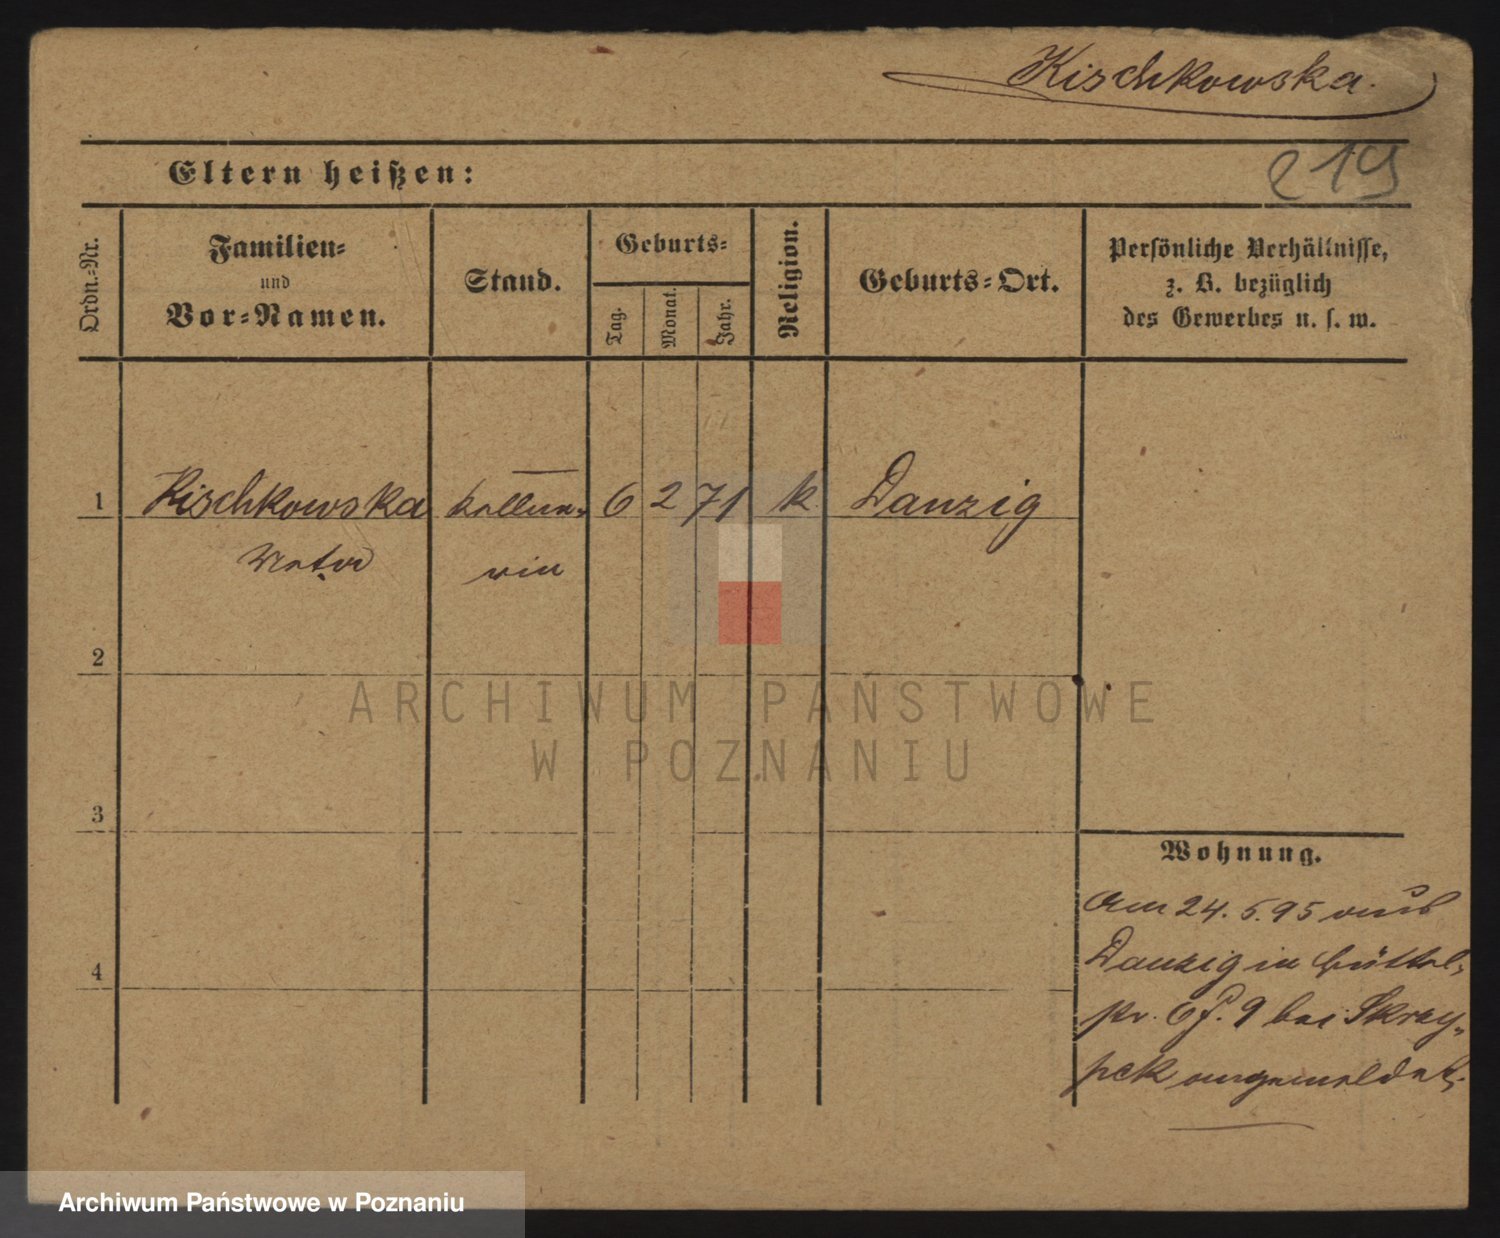 Kischkowska.
Eltern heißen:
219
Ordn.-Nr.
Familien-
und
Vor-Namen.
Stand.
Geburts-
Tag.
Monat.
Jahr.
Religion.
Geburts-Ort.
Persönliche Verhältnisse,
z. B. bezüglich
des Gewerbes u. s. w.
1 Kischkowska Kellne- 6 2 71 k Danzig
rin
2
3
4
Wohnung.
Am 24. 6. 95 aus
Danzig in Büttel-
str. 9 bei Skrzy-
pek angemeldet.
ARCHIWUM PAŃSTWOWE
W POZNANIU
Archiwum Państwowe w Poznaniu